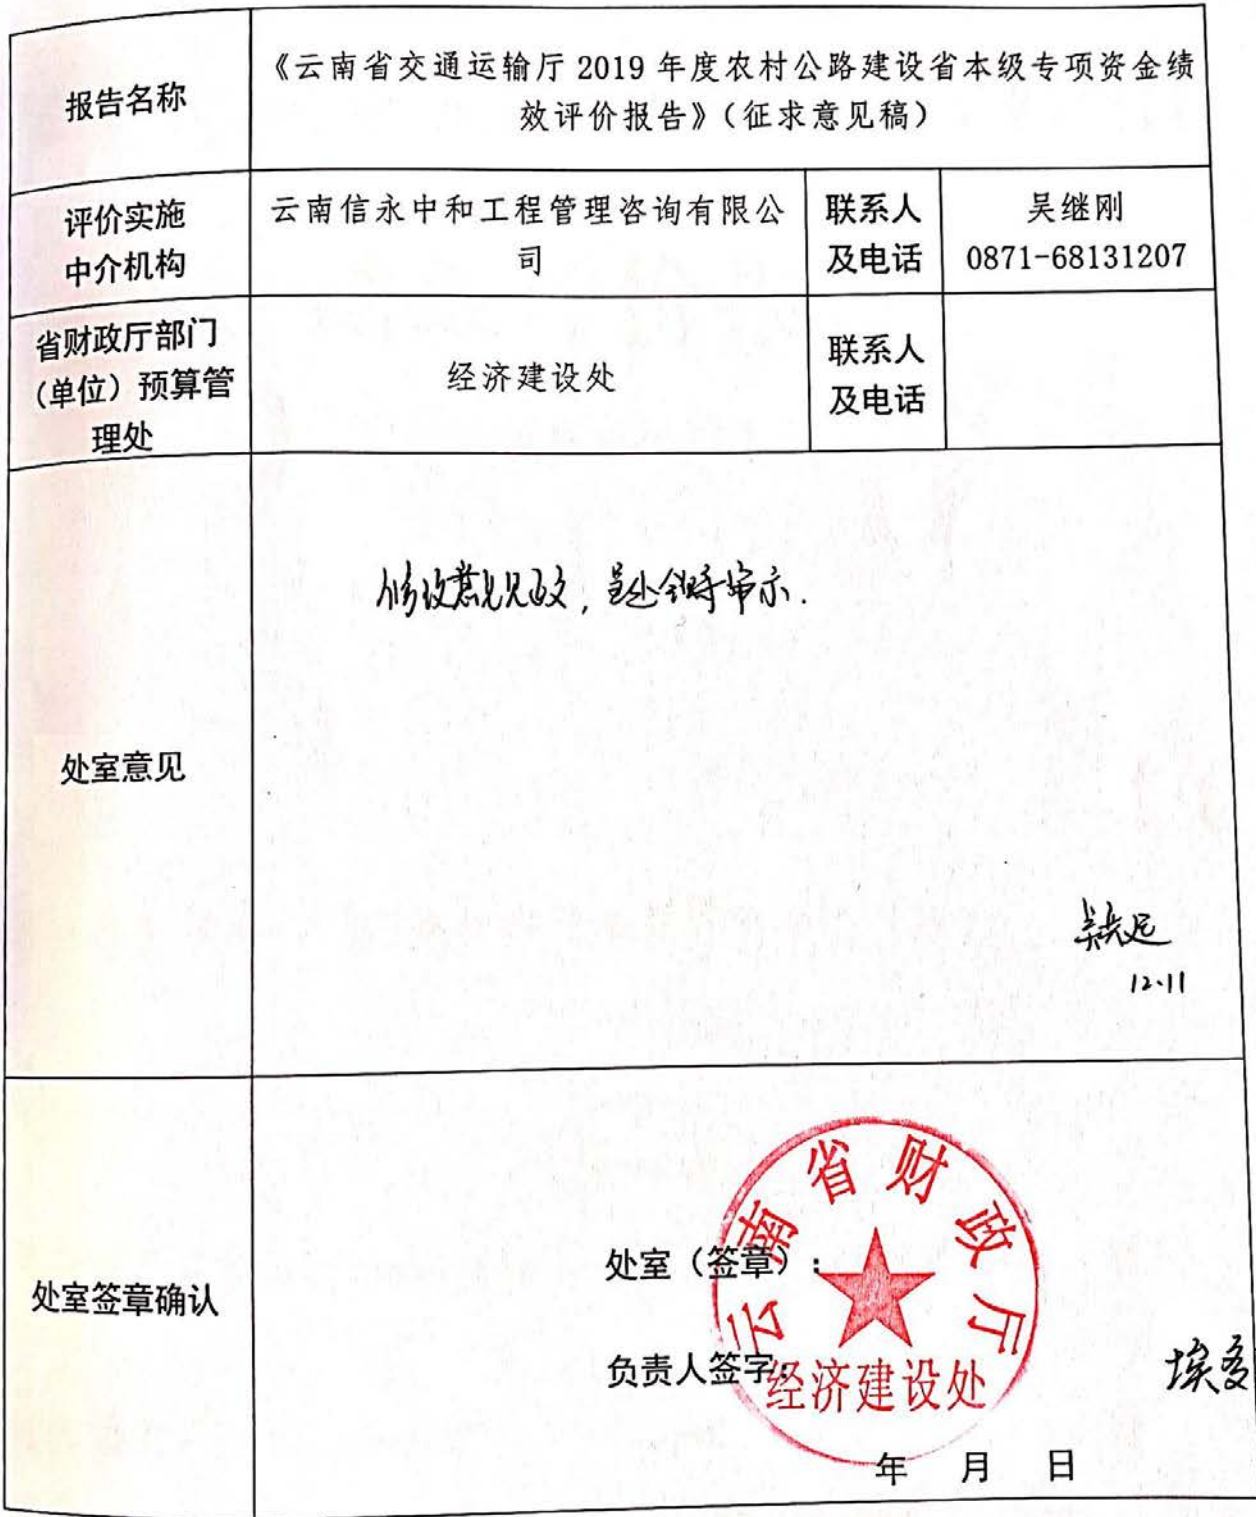 报告名称
《云南省交通运输厅 2019 年度农村公路建设省本级专项资金绩
效评价报告》（征求意见稿）
评价实施
中介机构
云南信永中和工程管理咨询有限公
司
联系人
及电话
吴继刚
0871-68131207
省财政厅部门
（单位）预算管
理处
经济建设处
联系人
及电话
处室意见
修改意见见改文，呈处领导审示.
12.11
处室签章确认
处室（签章）：
负责人签字：
云南省财政厅
经济建设处
年 月 日